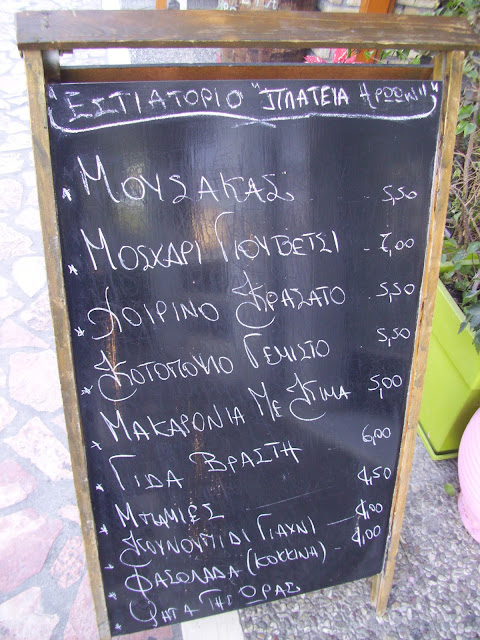 ΕΣΤΙΑΤΟΡΙΟ "ΠΛΑΤΕΙΑ ΗΡΩΩΝ"
* ΜΟΥΣΑΚΑΣ - 5,50
* ΜΟΣΧΑΡΙ ΓΙΟΥΒΕΤΣΙ - 7,00
* ΧΟΙΡΙΝΟ ΚΡΑΣΑΤΟ - 5,50
* ΚΟΤΟΠΟΥΛΟ ΓΕΜΙΣΤΟ - 5,50
* ΜΑΚΑΡΟΝΙΑ ΜΕ ΚΙΜΑ 5,00
* ΓΙΔΑ ΒΡΑΣΤΗ - 6,00
* ΜΠΑΜΙΕΣ - 4,50
* ΚΟΥΝΟΥΠΙΔΙ ΓΙΑΧΝΙ - 4,00
* ΦΑΣΟΛΑΔΑ (ΚΟΚΚΙΝΑ) - 4,00
* ΨΗΤΑ ΤΗΣ ΩΡΑΣ